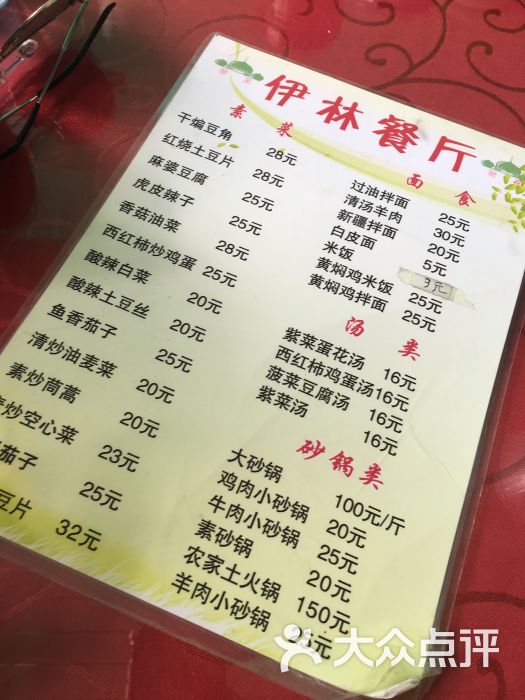 伊林餐厅
素菜
干煸豆角 28元
红烧土豆片 28元
麻婆豆腐 25元
虎皮辣子 25元
香菇油菜 28元
西红柿炒鸡蛋 25元
酸辣白菜 20元
酸辣土豆丝 20元
鱼香茄子 25元
清炒油麦菜 20元
素炒茼蒿 20元
炒空心菜 23元
茄子 25元
豆片 32元
面食
过油拌面 25元
清汤羊肉 30元
新疆拌面 20元
白皮面 5元
米饭 3元
黄焖鸡米饭 25元
黄焖鸡拌面 25元
汤类
紫菜蛋花汤 16元
西红柿鸡蛋汤 16元
菠菜豆腐汤 16元
紫菜汤 16元
砂锅类
大砂锅 100元/斤
鸡肉小砂锅 20元
牛肉小砂锅 25元
素砂锅 20元
农家土火锅 150元
羊肉小砂锅 25元
大众点评